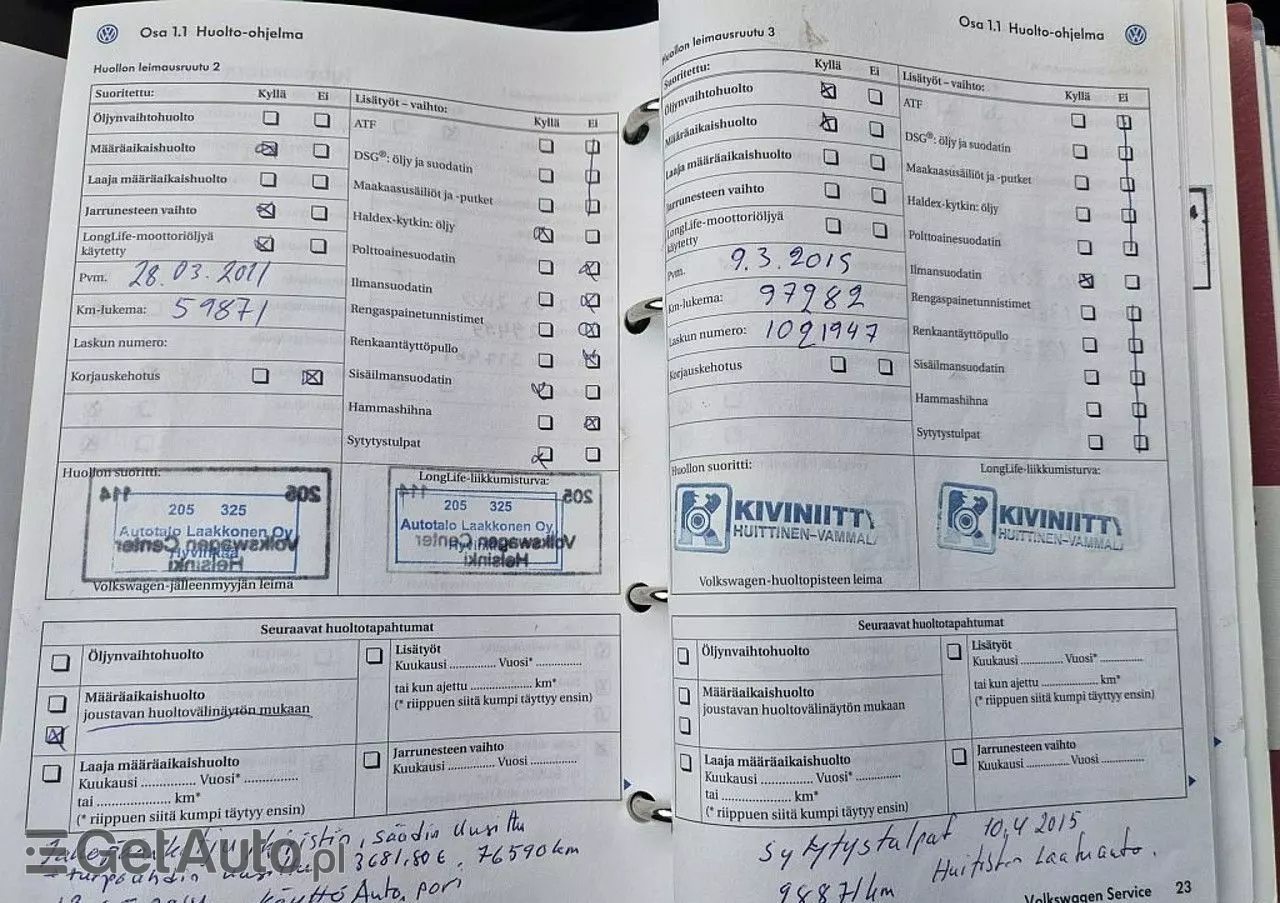 Osa 1.1 Huolto-ohjelma
Huollon leimausruutu 2
Suoritettu: Kyllä Ei
Öljynvaihtohuolto
Määräaikaishuolto
Laaja määräaikaishuolto
Jarrunesteen vaihto
LongLife-moottoriöljyä
käytetty
Pvm. 28.03.2011
Km-lukema: 59871
Laskun numero:
Korjauskehotus
Lisätyöt – vaihto:
Kyllä Ei
ATF
DSG®: öljy ja suodatin
Maakaasusäiliöt ja -putket
Haldex-kytkin: öljy
Polttoainesuodatin
Ilmansuodatin
Rengaspainetunnistimet
Renkaantäyttöpullo
Sisäilmansuodatin
Hammashihna
Sytytystulpat
Huollon suoritti:
114 205
205 325
Autotalo Laakkonen Oy
Hyvinkää
Volkswagen Center
Helsinki
Volkswagen-jälleenmyyjän leima
LongLife-liikkumisturva:
114 205
205 325
Autotalo Laakkonen Oy
Volkswagen Center
Helsinki
Seuraavat huoltotapahtumat
Öljynvaihtohuolto
Määräaikaishuolto
joustavan huoltovälinäytön mukaan
Laaja määräaikaishuolto
Kuukausi .............. Vuosi* ..............
tai ...................... km*
(* riippuen siitä kumpi täytyy ensin)
Lisätyöt
Kuukausi .............. Vuosi* ..............
tai kun ajettu ...................... km*
(* riippuen siitä kumpi täyttyy ensin)
Jarrunesteen vaihto
Kuukausi .............. Vuosi ..............
säädin uusittu
3681,80€, 76590km
Käyttö Auto, pori
GetAuto.pl
Osa 1.1 Huolto-ohjelma
Huollon leimausruutu 3
Suoritettu: Kyllä Ei
Öljynvaihtohuolto
Määräaikaishuolto
Laaja määräaikaishuolto
Jarrunesteen vaihto
LongLife-moottoriöljyä
käytetty
Pvm. 9.3.2015
Km-lukema: 97282
Laskun numero: 1021947
Korjauskehotus
Lisätyöt – vaihto:
Kyllä Ei
ATF
DSG®: öljy ja suodatin
Maakaasusäiliöt ja -putket
Haldex-kytkin: öljy
Polttoainesuodatin
Ilmansuodatin
Rengaspainetunnistimet
Renkaantäyttöpullo
Sisäilmansuodatin
Hammashihna
Sytytystulpat
Huollon suoritti:
KIVINIITTY
HUITTINEN-VAMMALA
Volkswagen-huoltopisteen leima
LongLife-liikkumisturva:
KIVINIITTY
HUITTINEN-VAMMALA
Seuraavat huoltotapahtumat
Öljynvaihtohuolto
Määräaikaishuolto
joustavan huoltovälinäytön mukaan
Laaja määräaikaishuolto
Kuukausi .............. Vuosi* ..............
tai ...................... km*
(* riippuen siitä kumpi täytyy ensin)
Lisätyöt
Kuukausi .............. Vuosi* ..............
tai kun ajettu ...................... km*
(* riippuen siitä kumpi täyttyy ensin)
Jarrunesteen vaihto
Kuukausi .............. Vuosi ..............
Sytytystulpat 10,4 2015
98871km Huitistin Laatuauto.
Volkswagen Service 23